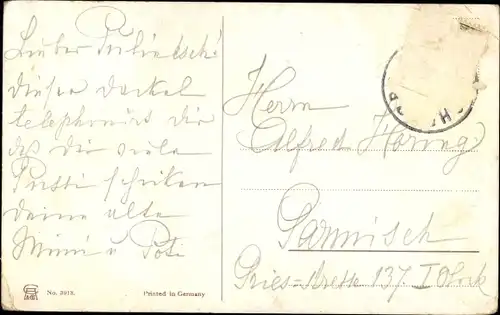 Lieber
dieser Dackel
telephoniert dir
daß die viele
Pussi schiken
deine alte
Mimi u Poti
Herrn
Alfred Höring
Garmisch
Gries-strasse 137 I Stock
No. 3912.
Printed in Germany